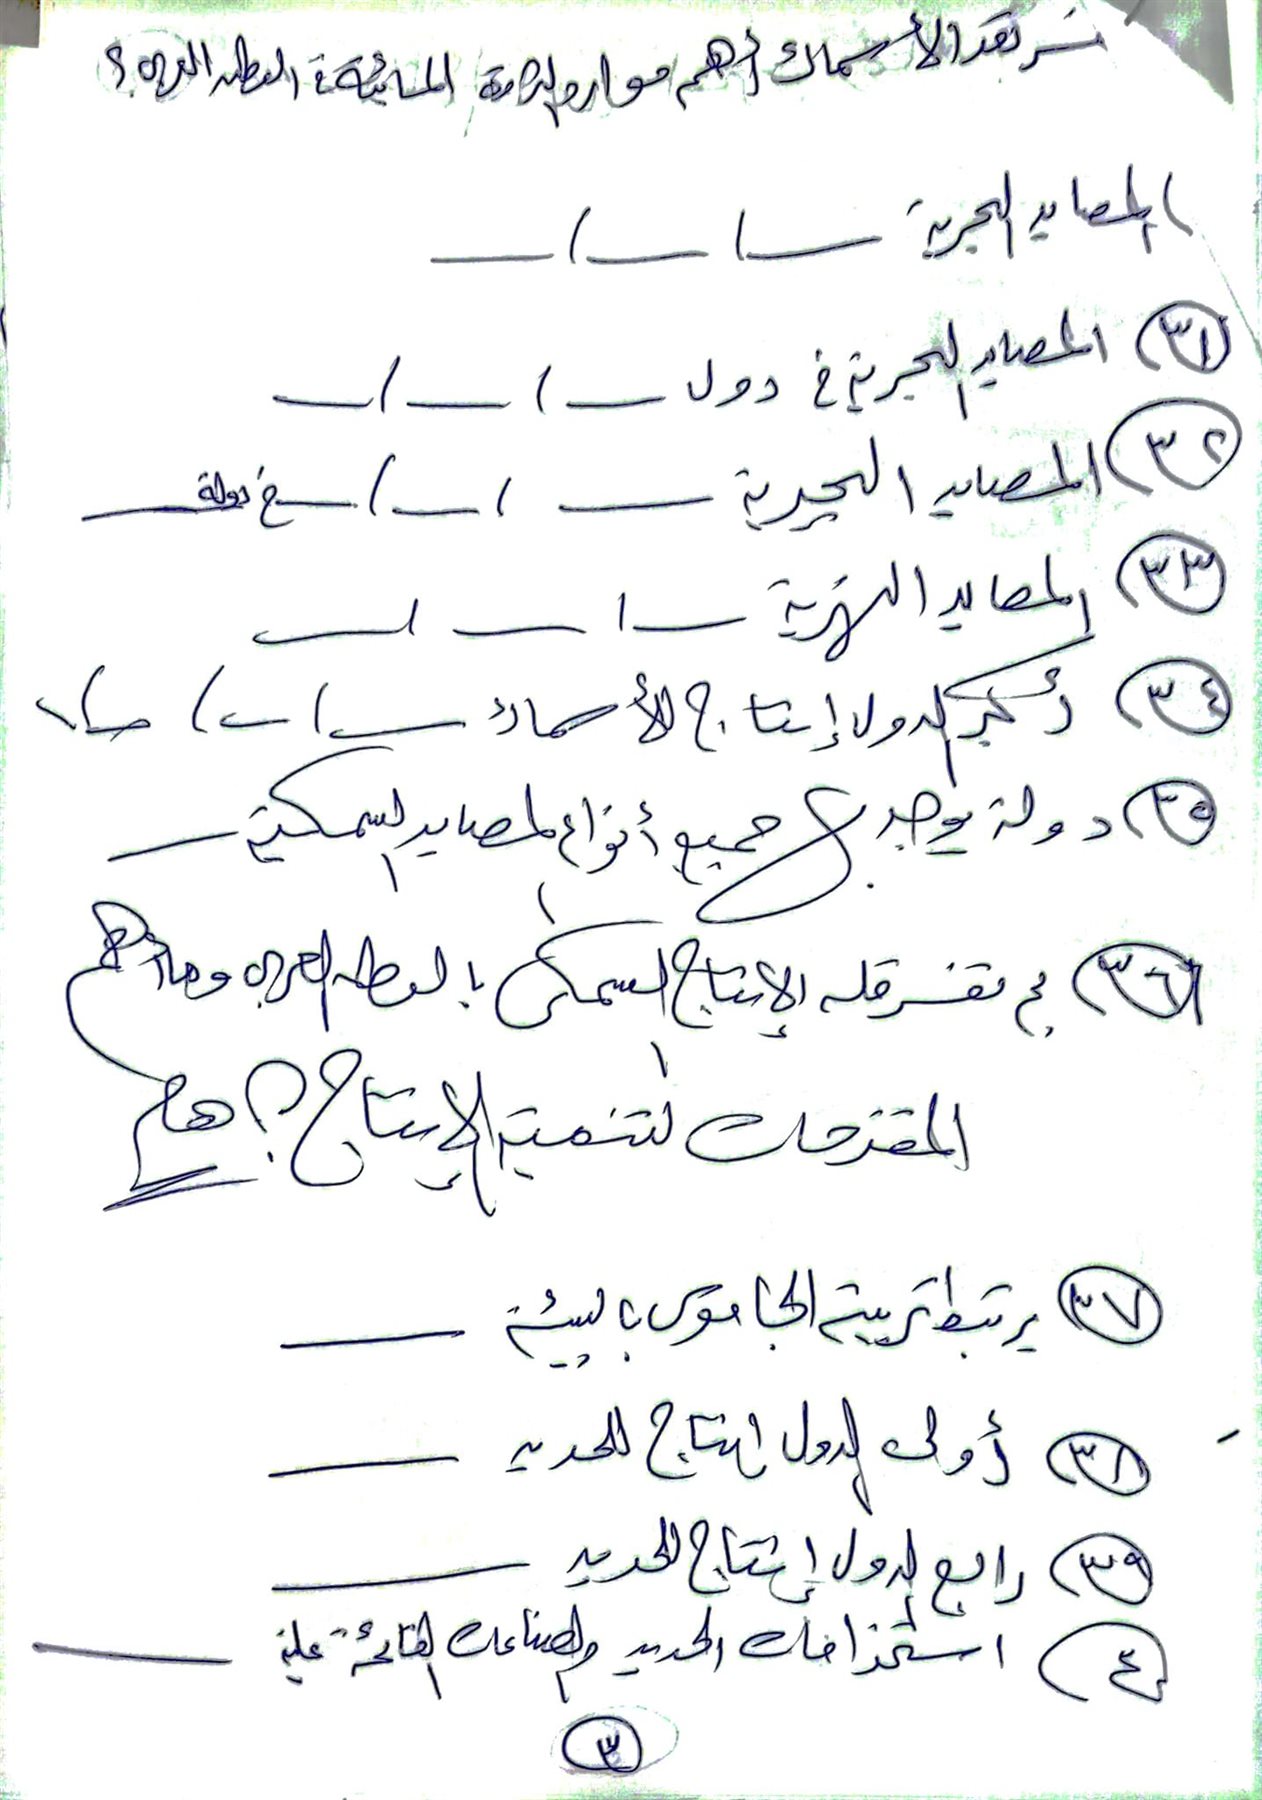 تعد الأسماك أهم موارد الثروة المائية فى الوطن العربى ؟
المصايد البحرية ـــ ، ـــ ، ـــ
(٣١) المصايد البحرية فى دول ـــ ، ـــ ، ـــ
(٣٢) المصايد البحيرية ـــ ، ـــ ، ـــ فى دولة ـــ
(٣٣) المصايد النهرية ـــ ، ـــ ، ـــ
(٣٤) أكبر الدول إنتاج للأسماك ـــ ، ـــ ، ـــ ،
(٣٥) دولة يوجد بها جميع أنواع المصايد السمكية ـــ
(٣٦) بم تفسر قلة الإنتاج السمكى بالوطن العربى وما أهم
المقترحات لتنمية الإنتاج ؟ هام
(٣٧) يرتبط تربية الجاموس بالبيئة ـــ
(٣٨) أولى الدول إنتاج للحديد ـــ
(٣٩) رابع الدول إنتاج للحديد ـــ
(٤٠) استخدامات الحديد والصناعات القائمة عليه ـــ
(٣)